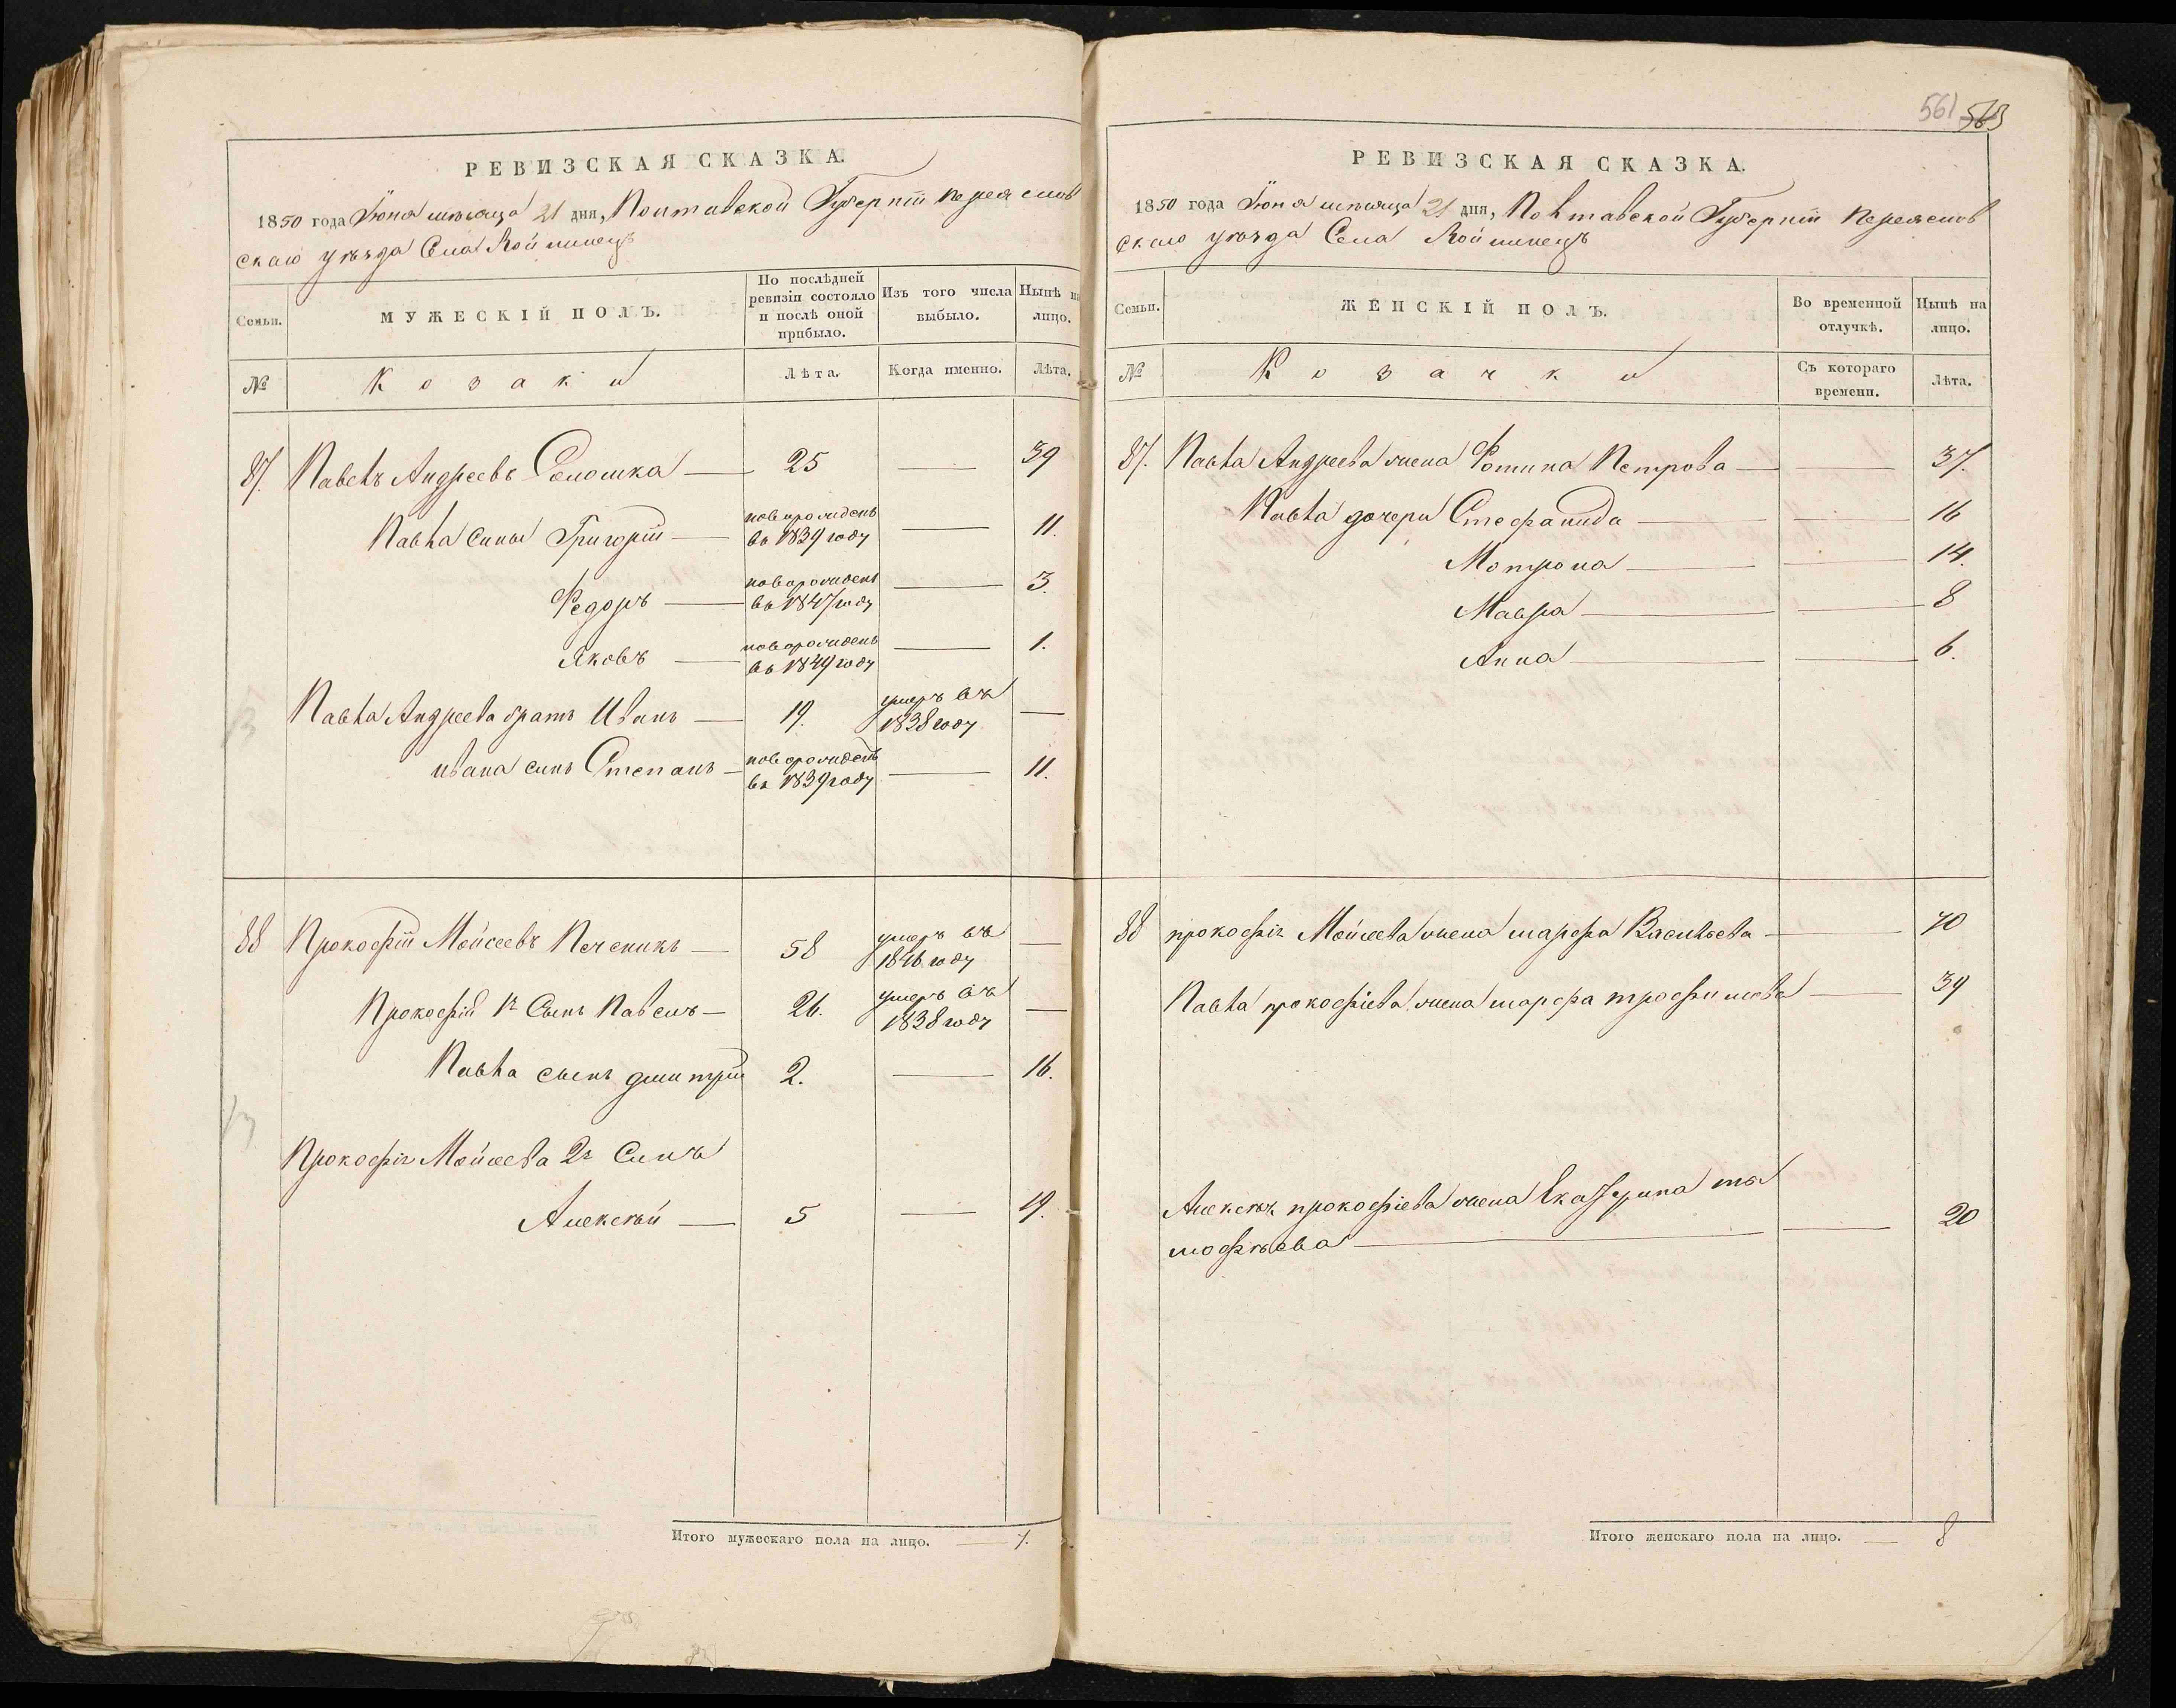 561 563
РЕВИЗСКАЯ СКАЗКА.
1850 года Іюня мѣсяца 21 дня, Полтавской Губерніи Переяслов
скаго уѣзда Села Войтинецъ
Семьи.
МУЖЕСКІЙ ПОЛЪ.
По послѣдней ревизіи состояло и послѣ оной прибыло.
Изъ того числа выбыло.
Нынѣ на лицо.
№
Козаки
Лѣта.
Когда именно.
Лѣта.
87. Павелъ Андреевъ Соломка — 25 — 39
Павла сины Григорій — новорожденъ въ 1839 году — 11.
Федоръ — новорожденъ въ 1847 году — 3.
Яковъ — новорожденъ въ 1849 году — 1.
Павла Андреева братъ Иванъ — 19. умеръ въ 1838 году —
ивана синъ Степанъ — новорожденъ въ 1839 году — 11.
88 Прокофій Мойсеевъ Печеникъ — 58 умеръ въ 1846 году —
Прокофія 1й Сынъ Павелъ — 26. умеръ въ 1838 году —
Павла сынъ дмитрій 2. — 16.
Прокофія Мойсеева 2й Синъ
Алексѣй — 5 — 19.
Итого мужескаго пола на лицо. — 7.
РЕВИЗСКАЯ СКАЗКА.
1850 года Іюня мѣсяца 21 дня, Полтавской Губерніи Переяслов
скаго уѣзда Села Войтинецъ
Семьи.
ЖЕНСКІЙ ПОЛЪ.
Во временной отлучкѣ.
Нынѣ на лицо.
№
Козачки
Съ котораго времени.
Лѣта.
87. Павла Андреева жена Фотина Петрова — — 37.
Павла дочери Стефанида — — 16
Мотрона — — 14.
Мавра — — 8
Анна — — 6.
88 прокофія Мойсеева жена марфа Васильева — — 70
Павла прокофіева жена марфа трофимова — 39
Алексѣя прокофіева жена Екатерина ти
мофѣева — — 20
Итого женскаго пола на лицо. — 8